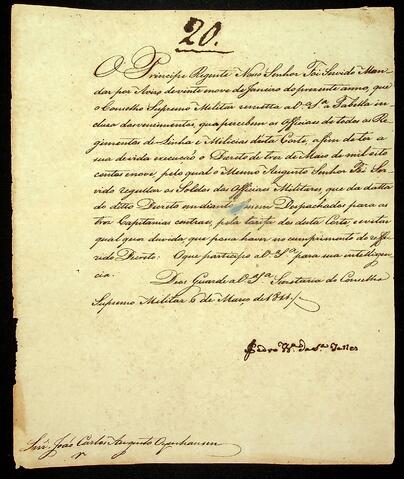 20.
O Principe Regente Nosso Senhor Foi Servido Man-
dar por Aviso de vinte e nove de Janeiro do presente anno, que
o Conselho Supremo Militar remetta a V. S.ª a Tabella in-
clusa dos vencimentos, que percebem os Officiaes de todos os Re-
gimentos de Linha e Milicias desta Corte, a fim de ter a
sua devida execucaõ o Dereto de trez de Maio de mil oito
centos e nove, pelo qual o Mesmo Augusto Senhor Foi Ser-
vido regullar os Soldos dos Officiaes Militares, que da datta
do ditto Decreto em diante fossem Despachados para as
trez Capitanias centraes, pela tarifa dos desta Corte, e evitar
qual quer duvida que possa haver no cumprimento do refe-
rido Decreto: O que participo a V. S.ª para sua intelligen-
cia.
Deos Guarde a V. S.ª Secretaria do Conselho
Supremo Militar 6 de Março de 1811
Pedro
Snr. João Carlos Augusto Oyenhausen